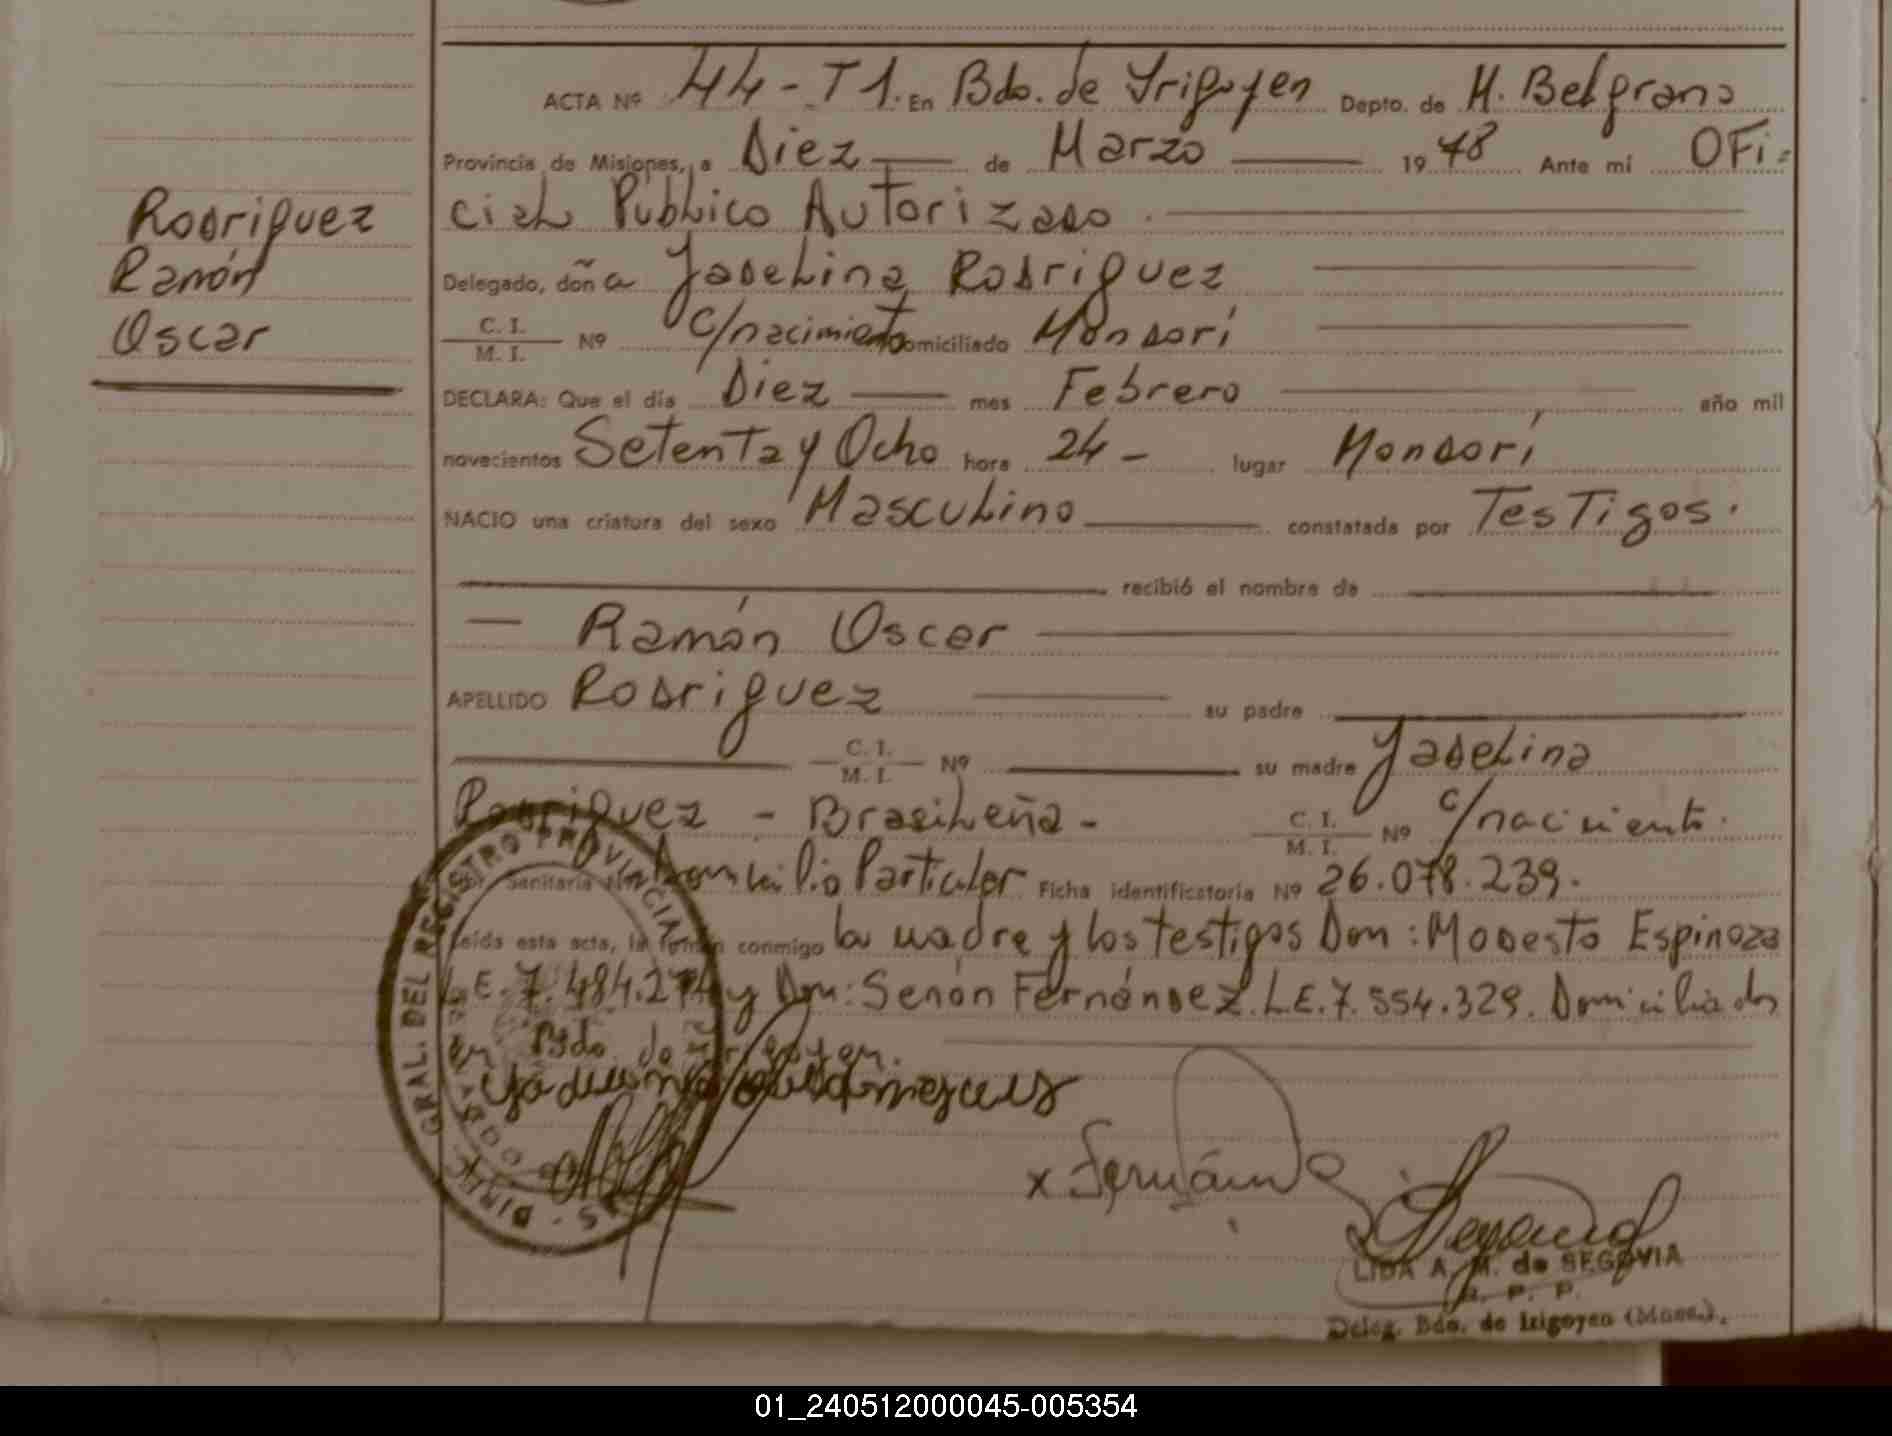 ACTA Nº 44 - T1. En Bdo. de Yrigoyen Depto. de M. Belgrano
Provincia de Misiones, a Diez de Marzo 1978 Ante mi OFi=
Rodriguez
Ramón
Oscar
ciaL Público Autorizado.
Delegado, doña JadeLina Rodriguez
C. I. / M. I. Nº c/nacimiento Domiciliado Mondorí
DECLARA: Que el día Diez mes Febrero año mil
novecientos Setenta y Ocho hora 24 - lugar Mondorí
NACIO una criatura del sexo MascuLino constatada por Testigos.
recibió el nombre de
Ramón Oscar
APELLIDO Rodriguez su padre
C. I. / M. I. Nº su madre JadeLina
Rodriguez - BrasiLeña - C. I. / M. I. Nº c/nacimiento.
Sanitaria Domicilio Particular Ficha identificatoria Nº 26.078.239.
Leída esta acta, la firman conmigo la madre y los testigos Don: Modesto Espinoza
L.E. 7.484.274 y Don: Senón Fernández. L.E. 7.554.329. Domiciliados
en Bdo. de Irigoyen.
x Fernánd
LIDA A. M. de SEGOVIA
R. P. P.
Deleg. Bdo. de Irigoyen (Mnes.).
DIREC. GRAL. DEL REGISTRO PROVINCIAL
01_240512000045-005354